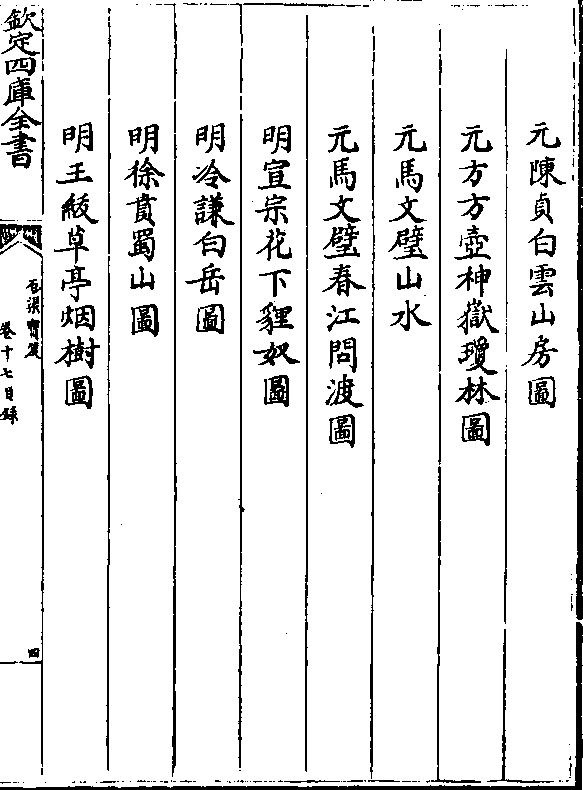 元陳貞白雲山房圖
元方方壺神嶽瓊林圖
元馬文璧山水
元馬文璧春江問渡圖
明宣宗花下貍奴圖
明冷謙白岳圖
明徐賁蜀山圖
明王紱草亭烟樹圖
欽定四庫全書
石渠寳笈
卷十七目錄
四